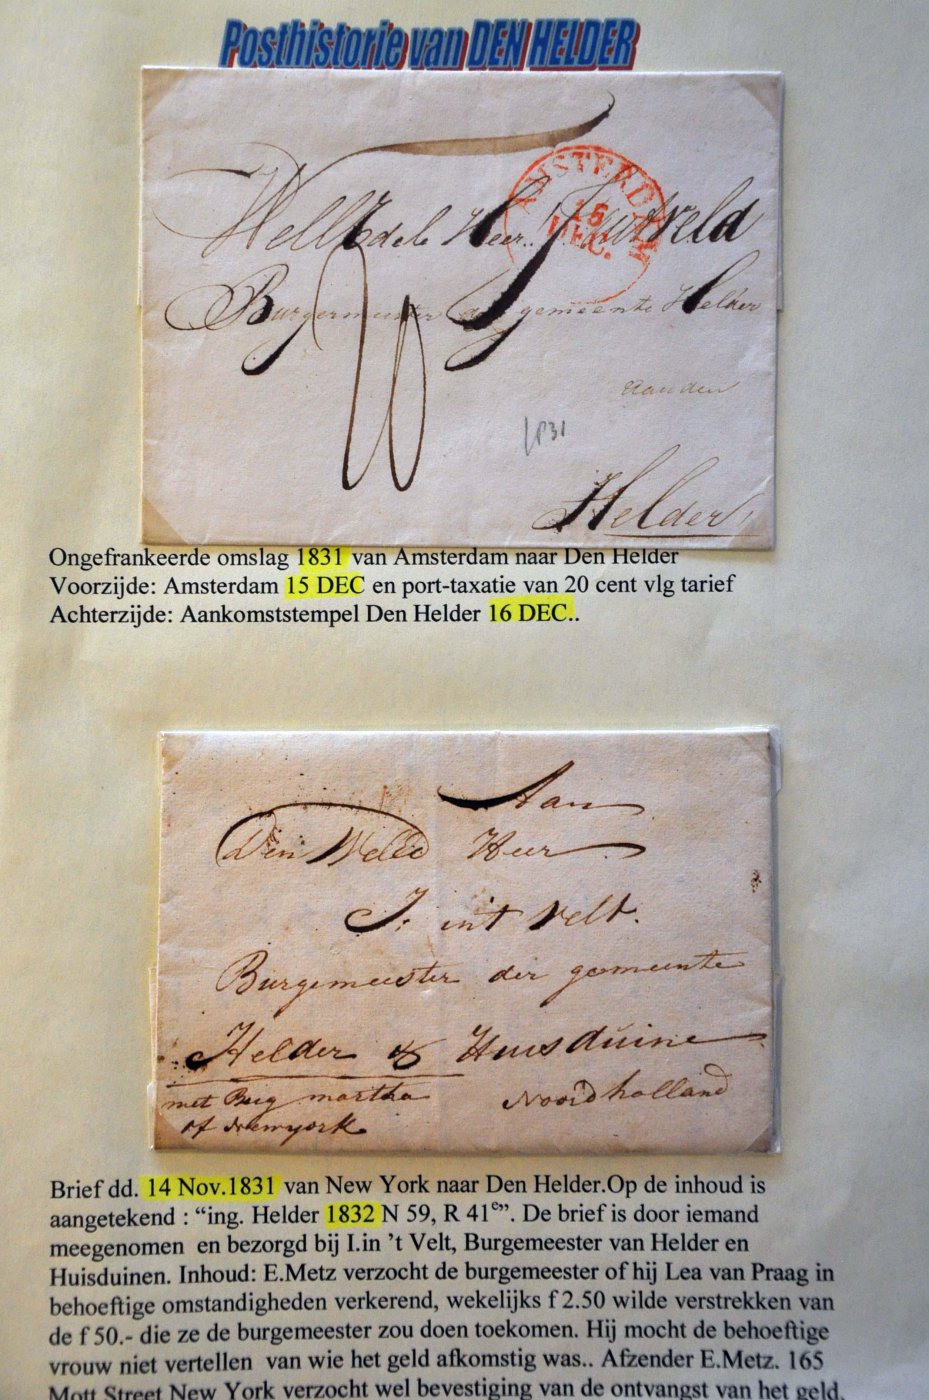 Posthistorie van DEN HELDER
AMSTERDAM
15
DEC.
Heer
Burgemeester der gemeente Helder
20
aan den
1831
Helder
Ongefrankeerde omslag 1831 van Amsterdam naar Den Helder
Voorzijde: Amsterdam 15 DEC en port-taxatie van 20 cent vlg tarief
Achterzijde: Aankomststempel Den Helder 16 DEC..
Aan
Den Heer
J: int Velt.
Burgemeester der gemeente
Helder & Huisduine
Noordholland
met Brig martha
of Newyork
Brief dd. 14 Nov.1831 van New York naar Den Helder.Op de inhoud is
aangetekend : “ing. Helder 1832 N 59, R 41e”. De brief is door iemand
meegenomen en bezorgd bij I.in ’t Velt, Burgemeester van Helder en
Huisduinen. Inhoud: E.Metz verzocht de burgemeester of hij Lea van Praag in
behoeftige omstandigheden verkerend, wekelijks f 2.50 wilde verstrekken van
de f 50.- die ze de burgemeester zou doen toekomen. Hij mocht de behoeftige
vrouw niet vertellen van wie het geld afkomstig was.. Afzender E.Metz. 165
Mott Street New York verzocht wel bevestiging van de ontvangst van het geld.